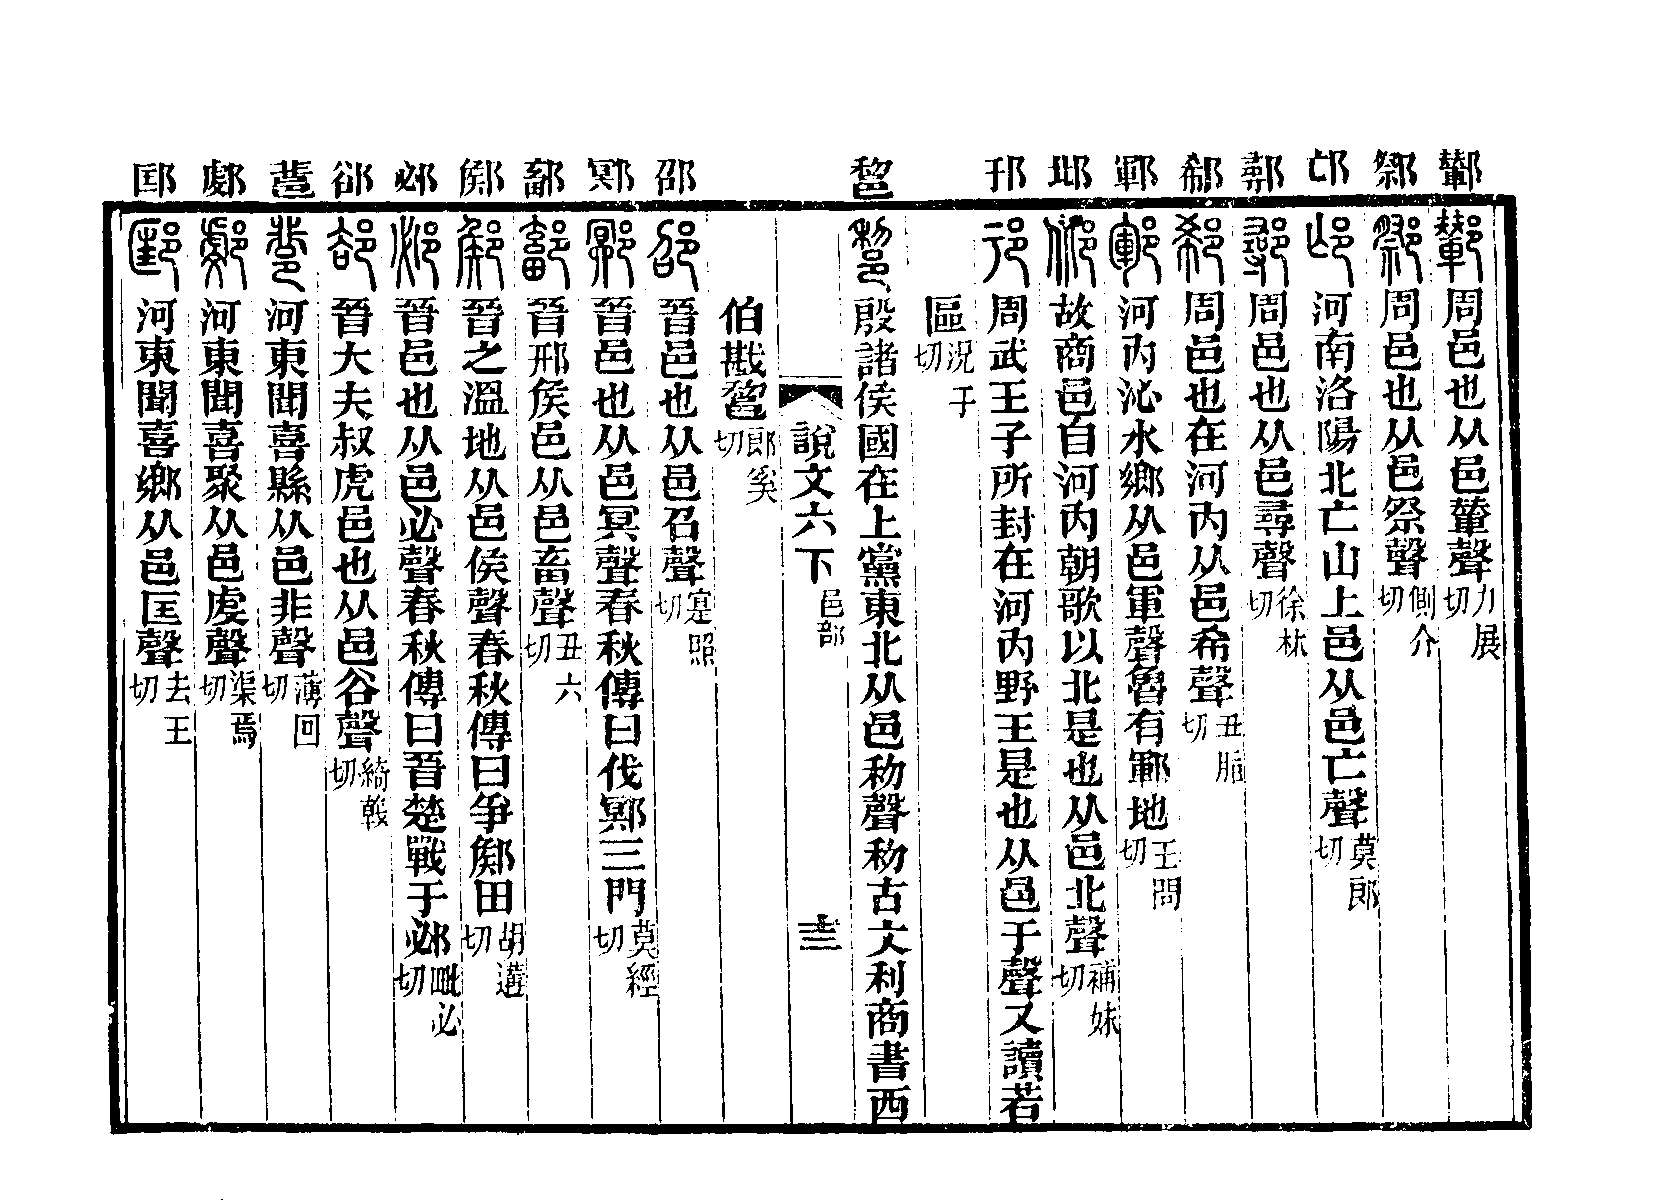 𨞔 周邑也从邑輦聲力展切
鄒 周邑也从邑祭聲側介切
邙 河南洛陽北亡山上邑从邑亡聲莫郎切
鄩 周邑也从邑尋聲徐林切
郗 周邑也在河內从邑希聲丑脂切
鄆 河內沁水鄉从邑軍聲魯有鄆地王問切
邶 故商邑自河內朝歌以北是也从邑北聲補妹切
邘 周武王子所封在河內野王是也从邑于聲又讀若
區況于切
𨛫 殷諸侯國在上黨東北从邑𥝢聲𥝢古文利商書西
說文六下 邑部 十三
伯戡𨛫郎奚切
邵 晉邑也从邑召聲寔照切
鄍 晉邑也从邑冥聲春秋傳曰伐鄍三門莫經切
鄐 晉邢侯邑从邑畜聲丑六切
鄇 晉之溫地从邑侯聲春秋傳曰爭鄇田胡遘切
邲 晉邑也从邑必聲春秋傳曰晉楚戰于邲毗必切
郤 晉大夫叔虎邑也从邑谷聲綺戟切
𨛬 河東聞喜縣从邑非聲薄回切
𨞙 河東聞喜聚从邑虔聲渠焉切
𨛭 河東聞喜鄉从邑匡聲去王切